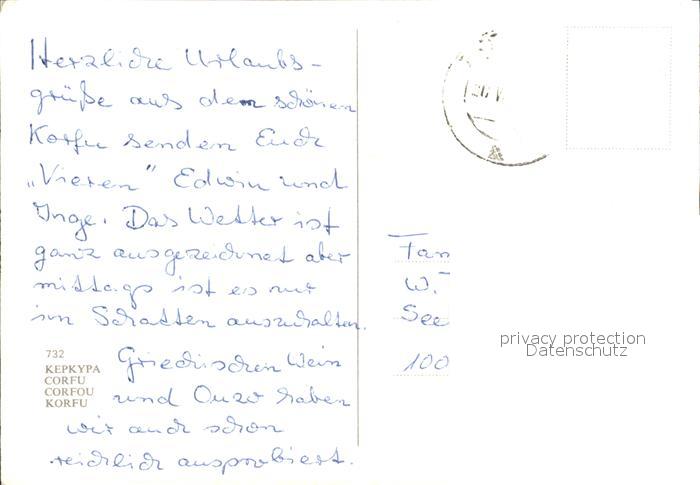 Herzliche Urlaubs-
grüße aus dem schönen
Korfu senden Euch
„Vieren" Edwin und
Inge. Das Wetter ist
ganz ausgezeichnet aber
mittags ist es nur
im Schatten auszuhalten.
Griechischen Wein
und Ouzo haben
wir auch schon
reichlich ausprobiert.
732
ΚΕΡΚΥΡΑ
CORFU
CORFOU
KORFU
Fam
W.
See
100
privacy protection
Datenschutz